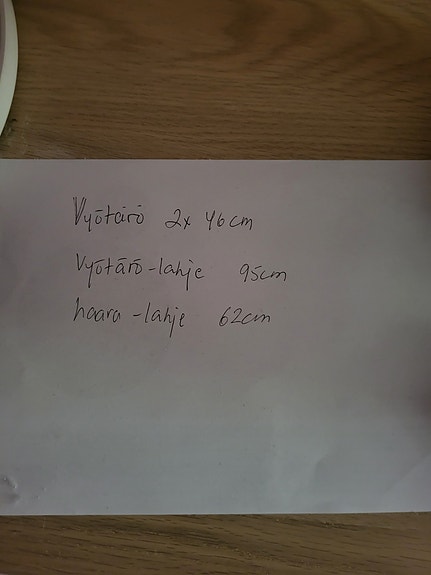 Vyötärö 2x 46cm
Vyötärö-lahje 95cm
haara -lahje 62cm